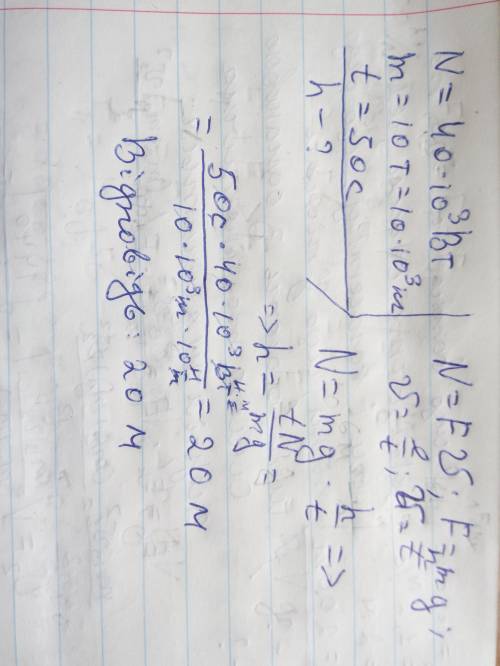 N = 40·10³ Вт
m = 10т = 10·10³ m
t = 50c
h - ?
N = Fυ; F = mg;
υ = ℓ/t; υ = h/t
N = mg · h/t =>
=> h = tN/mg =
= 50c · 40·10³ / 10·10³ m · 10 = 20 м
Відповідь: 20 м